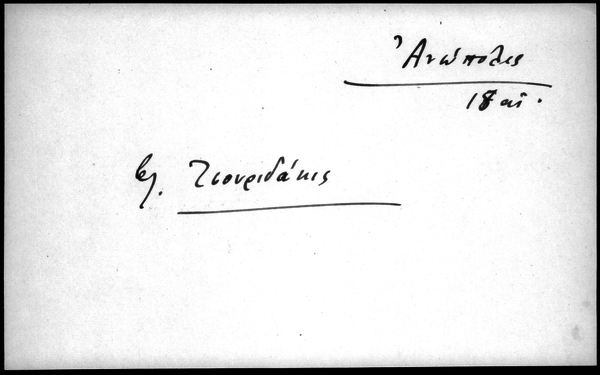 Ἀνώπολις
18 αἰ.
βλ. Τσουριδάκις